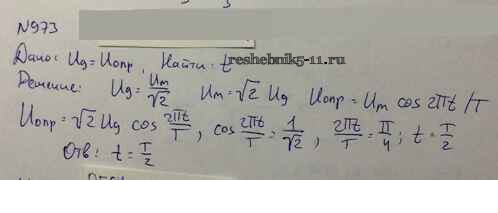 N973
Дано: Uд = Uопр, Найти: t
reshebnik5-11.ru
Решение: Uд = Um/√2 Um = √2 Uд Uопр = Um cos 2πt/T
Uопр = √2 Uд cos 2πt/T, cos 2πt/T = 1/√2, 2πt/T = π/4; t = T/2
Отв: t = T/2